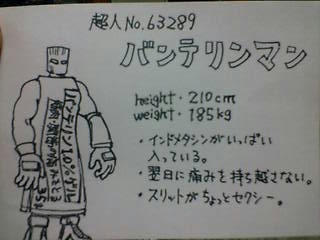 超人No.63289
バンテリンマン
height・210cm
weight・185kg
・インドメタシンがいっぱい
入っている。
・翌日に痛みを持ち越さない。
・スリットがちょっとセクシー。
バンテリン1.0%ゲル
35g